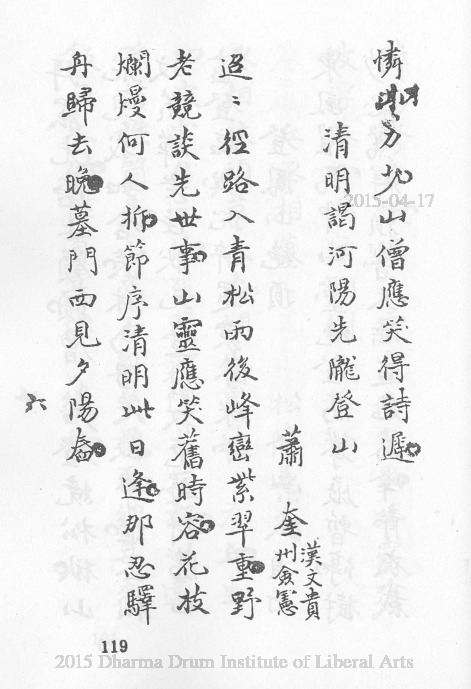 憐力山僧應笑得詩遲
清明謁河陽先隴登山
蕭奎
漢文貴
州僉憲
迢〻徑路入青松雨後峰巒紫翠重野
老競談先世事山靈應笑舊時容花枝
爛熳何人折節序清明此日逢那忍驛
舟歸去晚墓門西見夕陽舂
六
119
2015-04-17
2015 Dharma Drum Institute of Liberal Arts